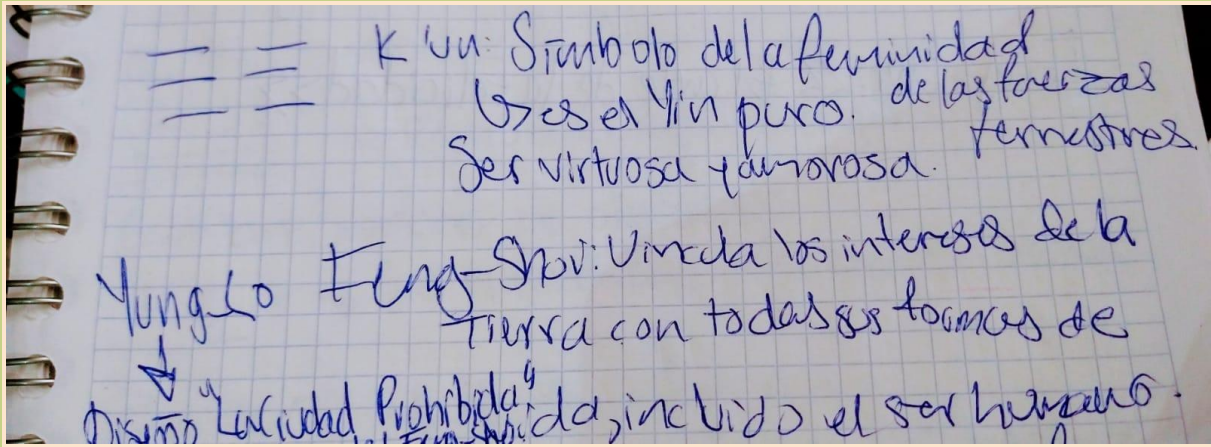 K'un: Símbolo de la feminidad
↳ es el Yin puro. de las fuerzas
Ser virtuosa y amorosa. terrestres.
Yung-Lo
Feng-Shui: Vincula los intereses de la
Tierra con todas sus formas de
vida, incluido el ser humano.
↓
Diseño "La Ciudad Prohibida"